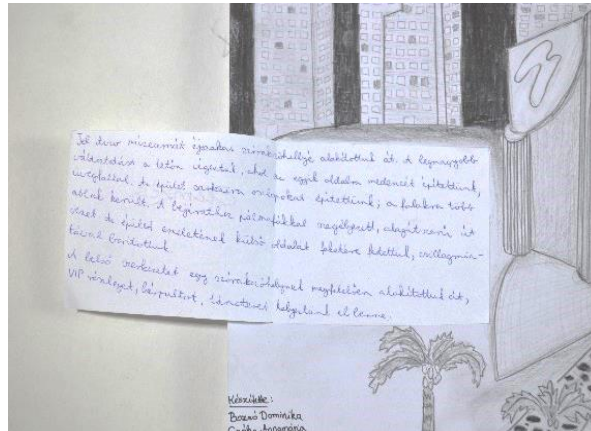 múzeumát éjszakai szórakozóhellyé alakítottuk át. A legnagyobb
változtatást a tetőn végeztük, ahol az egyik oldalra medencét építettünk,
üvegfallal. Az épület sarkaira oszlopokat építettünk; a falakra több
ablak került. A bejárathoz pálmafákkal szegélyezett, út
vezet. Az épület emeletének külső oldalát feketére festettük, csillagmin-
tával borítottuk.
A belső szerkezetet egy szórakozóhelynek megfelelően alakítottuk át,
VIP részleget, bárpultot, helyeztünk el benne.
Készítette:
Dominika
Annamária